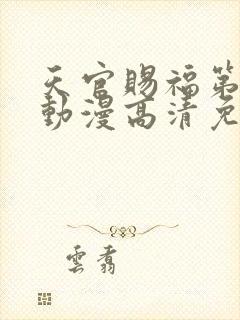 天官賜福第
動漫高清免
雲翥